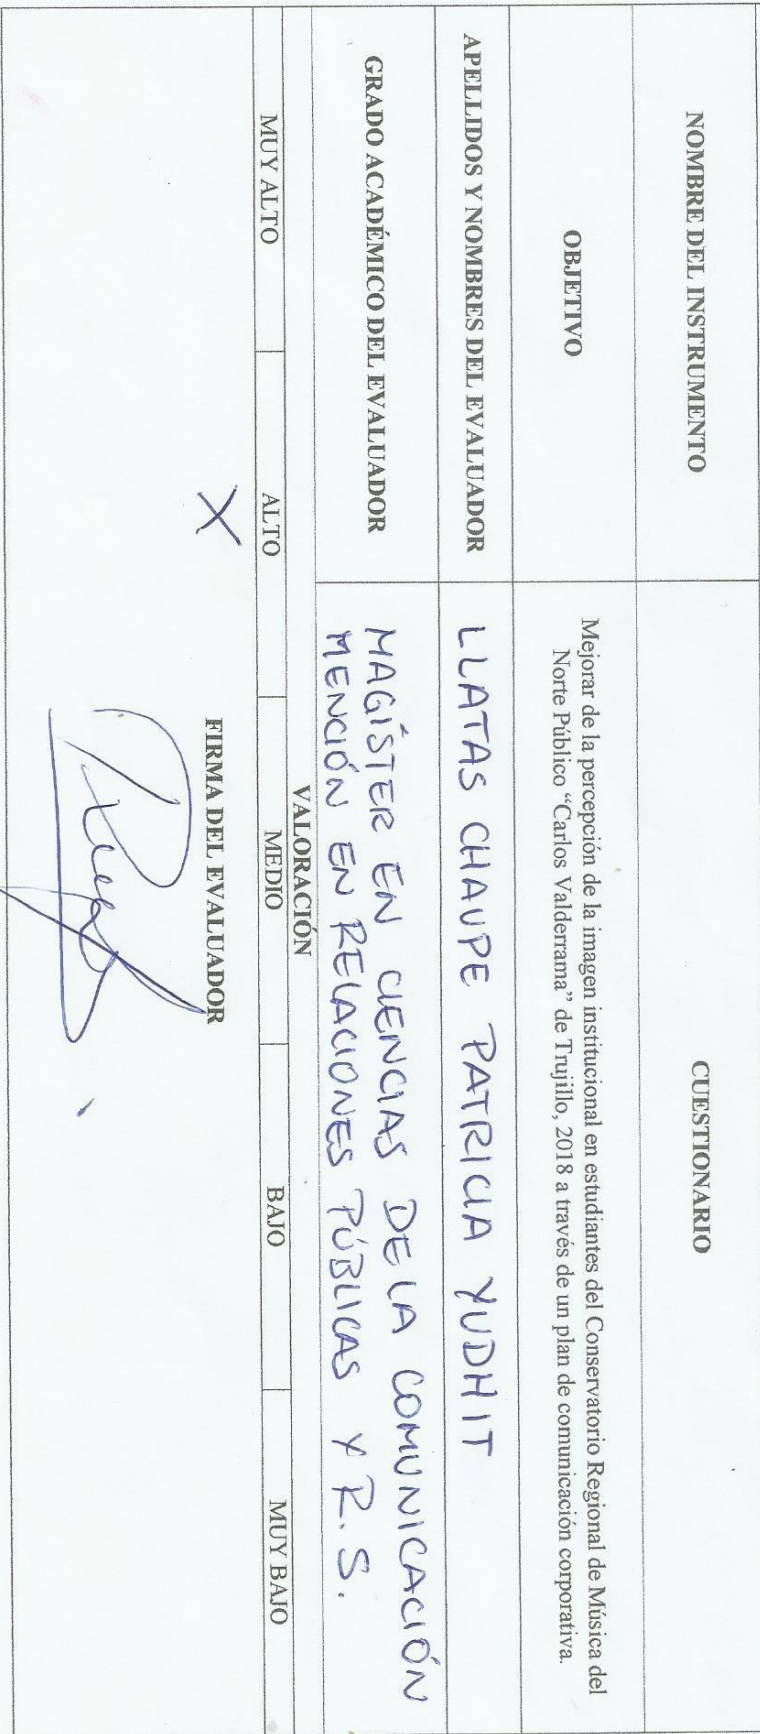 NOMBRE DEL INSTRUMENTO
CUESTIONARIO
OBJETIVO
Mejorar de la percepción de la imagen institucional en estudiantes del Conservatorio Regional de Música del
Norte Público “Carlos Valderrama” de Trujillo, 2018 a través de un plan de comunicación corporativa.
APELLIDOS Y NOMBRES DEL EVALUADOR
LLATAS CHAUPE PATRICIA YUDHIT
GRADO ACADÉMICO DEL EVALUADOR
MAGÍSTER EN CIENCIAS DE LA COMUNICACIÓN
MENCIÓN EN RELACIONES PÚBLICAS Y R.S.
VALORACIÓN
MUY ALTO ALTO MEDIO BAJO MUY BAJO
X
FIRMA DEL EVALUADOR